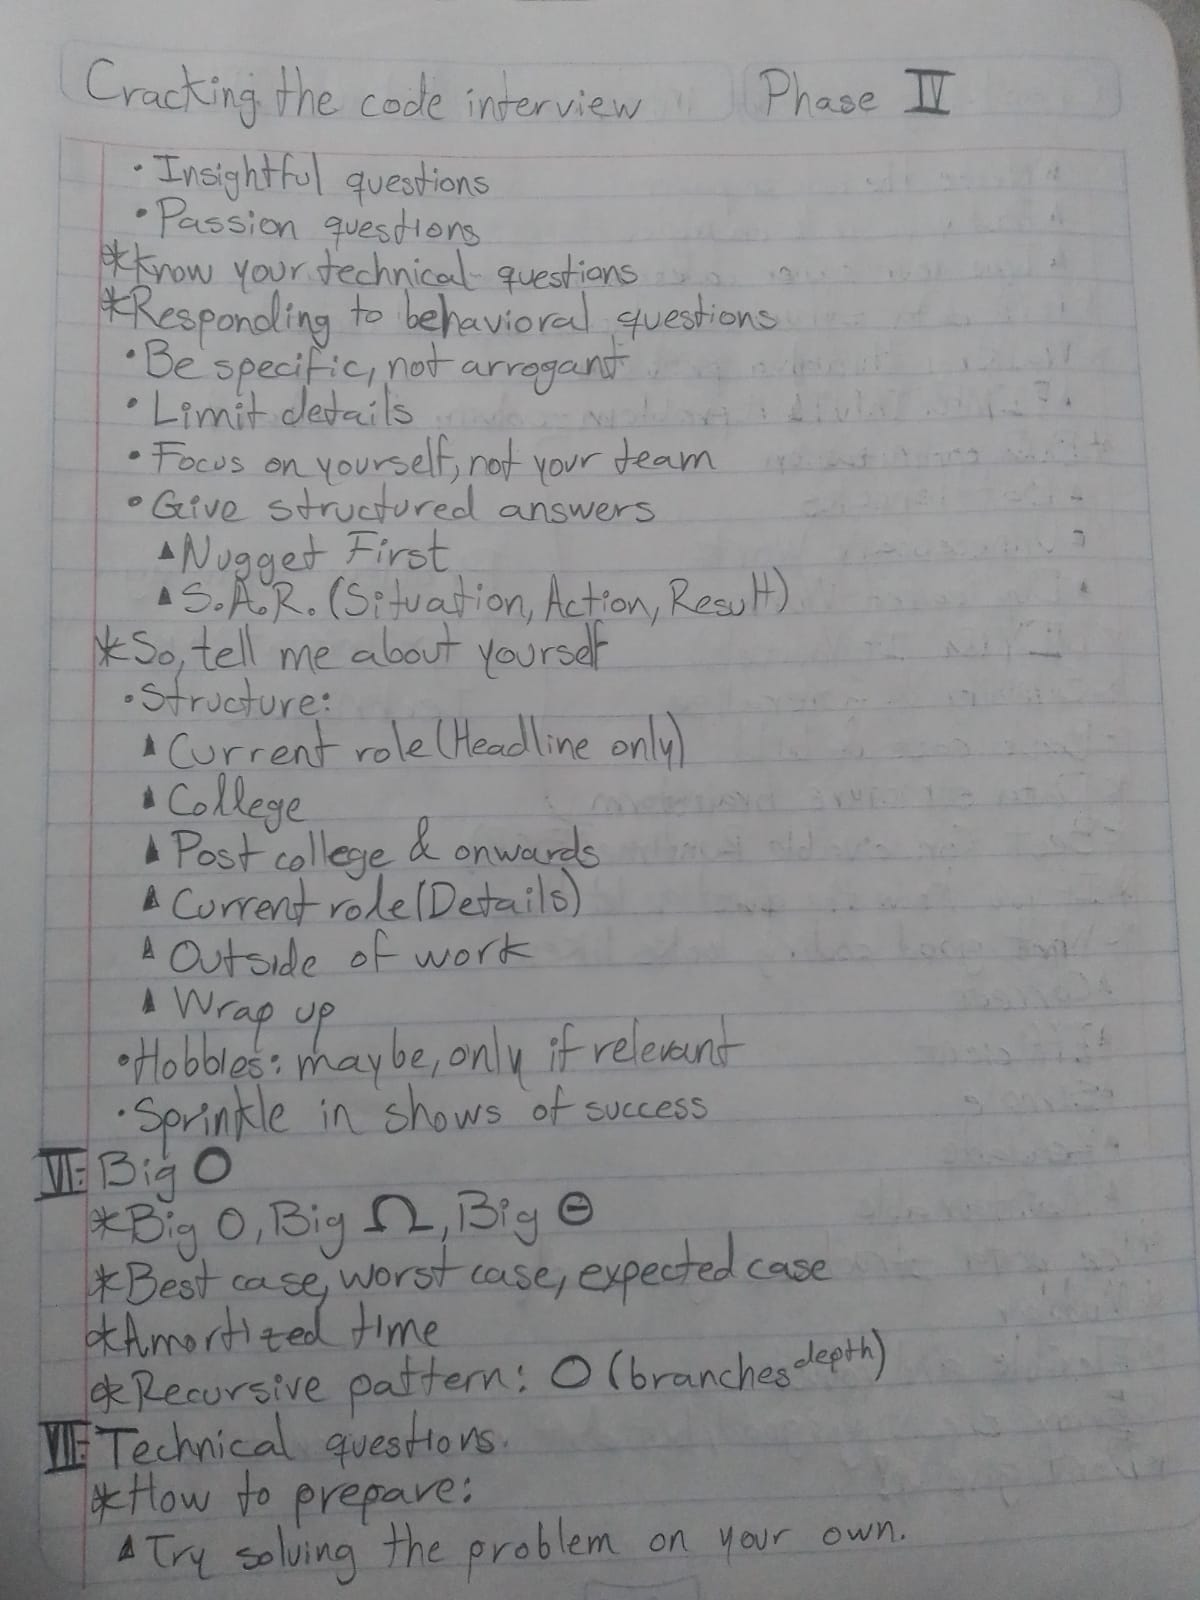 Cracking the code interview Phase IV
• Insightful questions
• Passion questions
*Know your technical questions
*Responding to behavioral questions
• Be specific, not arrogant
• Limit details
• Focus on yourself, not your team
• Give structured answers
▲Nugget First
▲S.A.R. (Situation, Action, Result)
*So, tell me about yourself
• Structure:
▲Current role (Headline only)
▲College
▲Post college & onwards
▲Current role (Details)
▲Outside of work
▲Wrap up
• Hobbies: maybe, only if relevant
• Sprinkle in shows of success
VI: Big O
*Big O, Big Ω, Big Θ
*Best case, worst case, expected case
*Amortized time
*Recursive pattern: O (branches^depth)
VII: Technical questions.
*How to prepare:
▲Try solving the problem on your own.